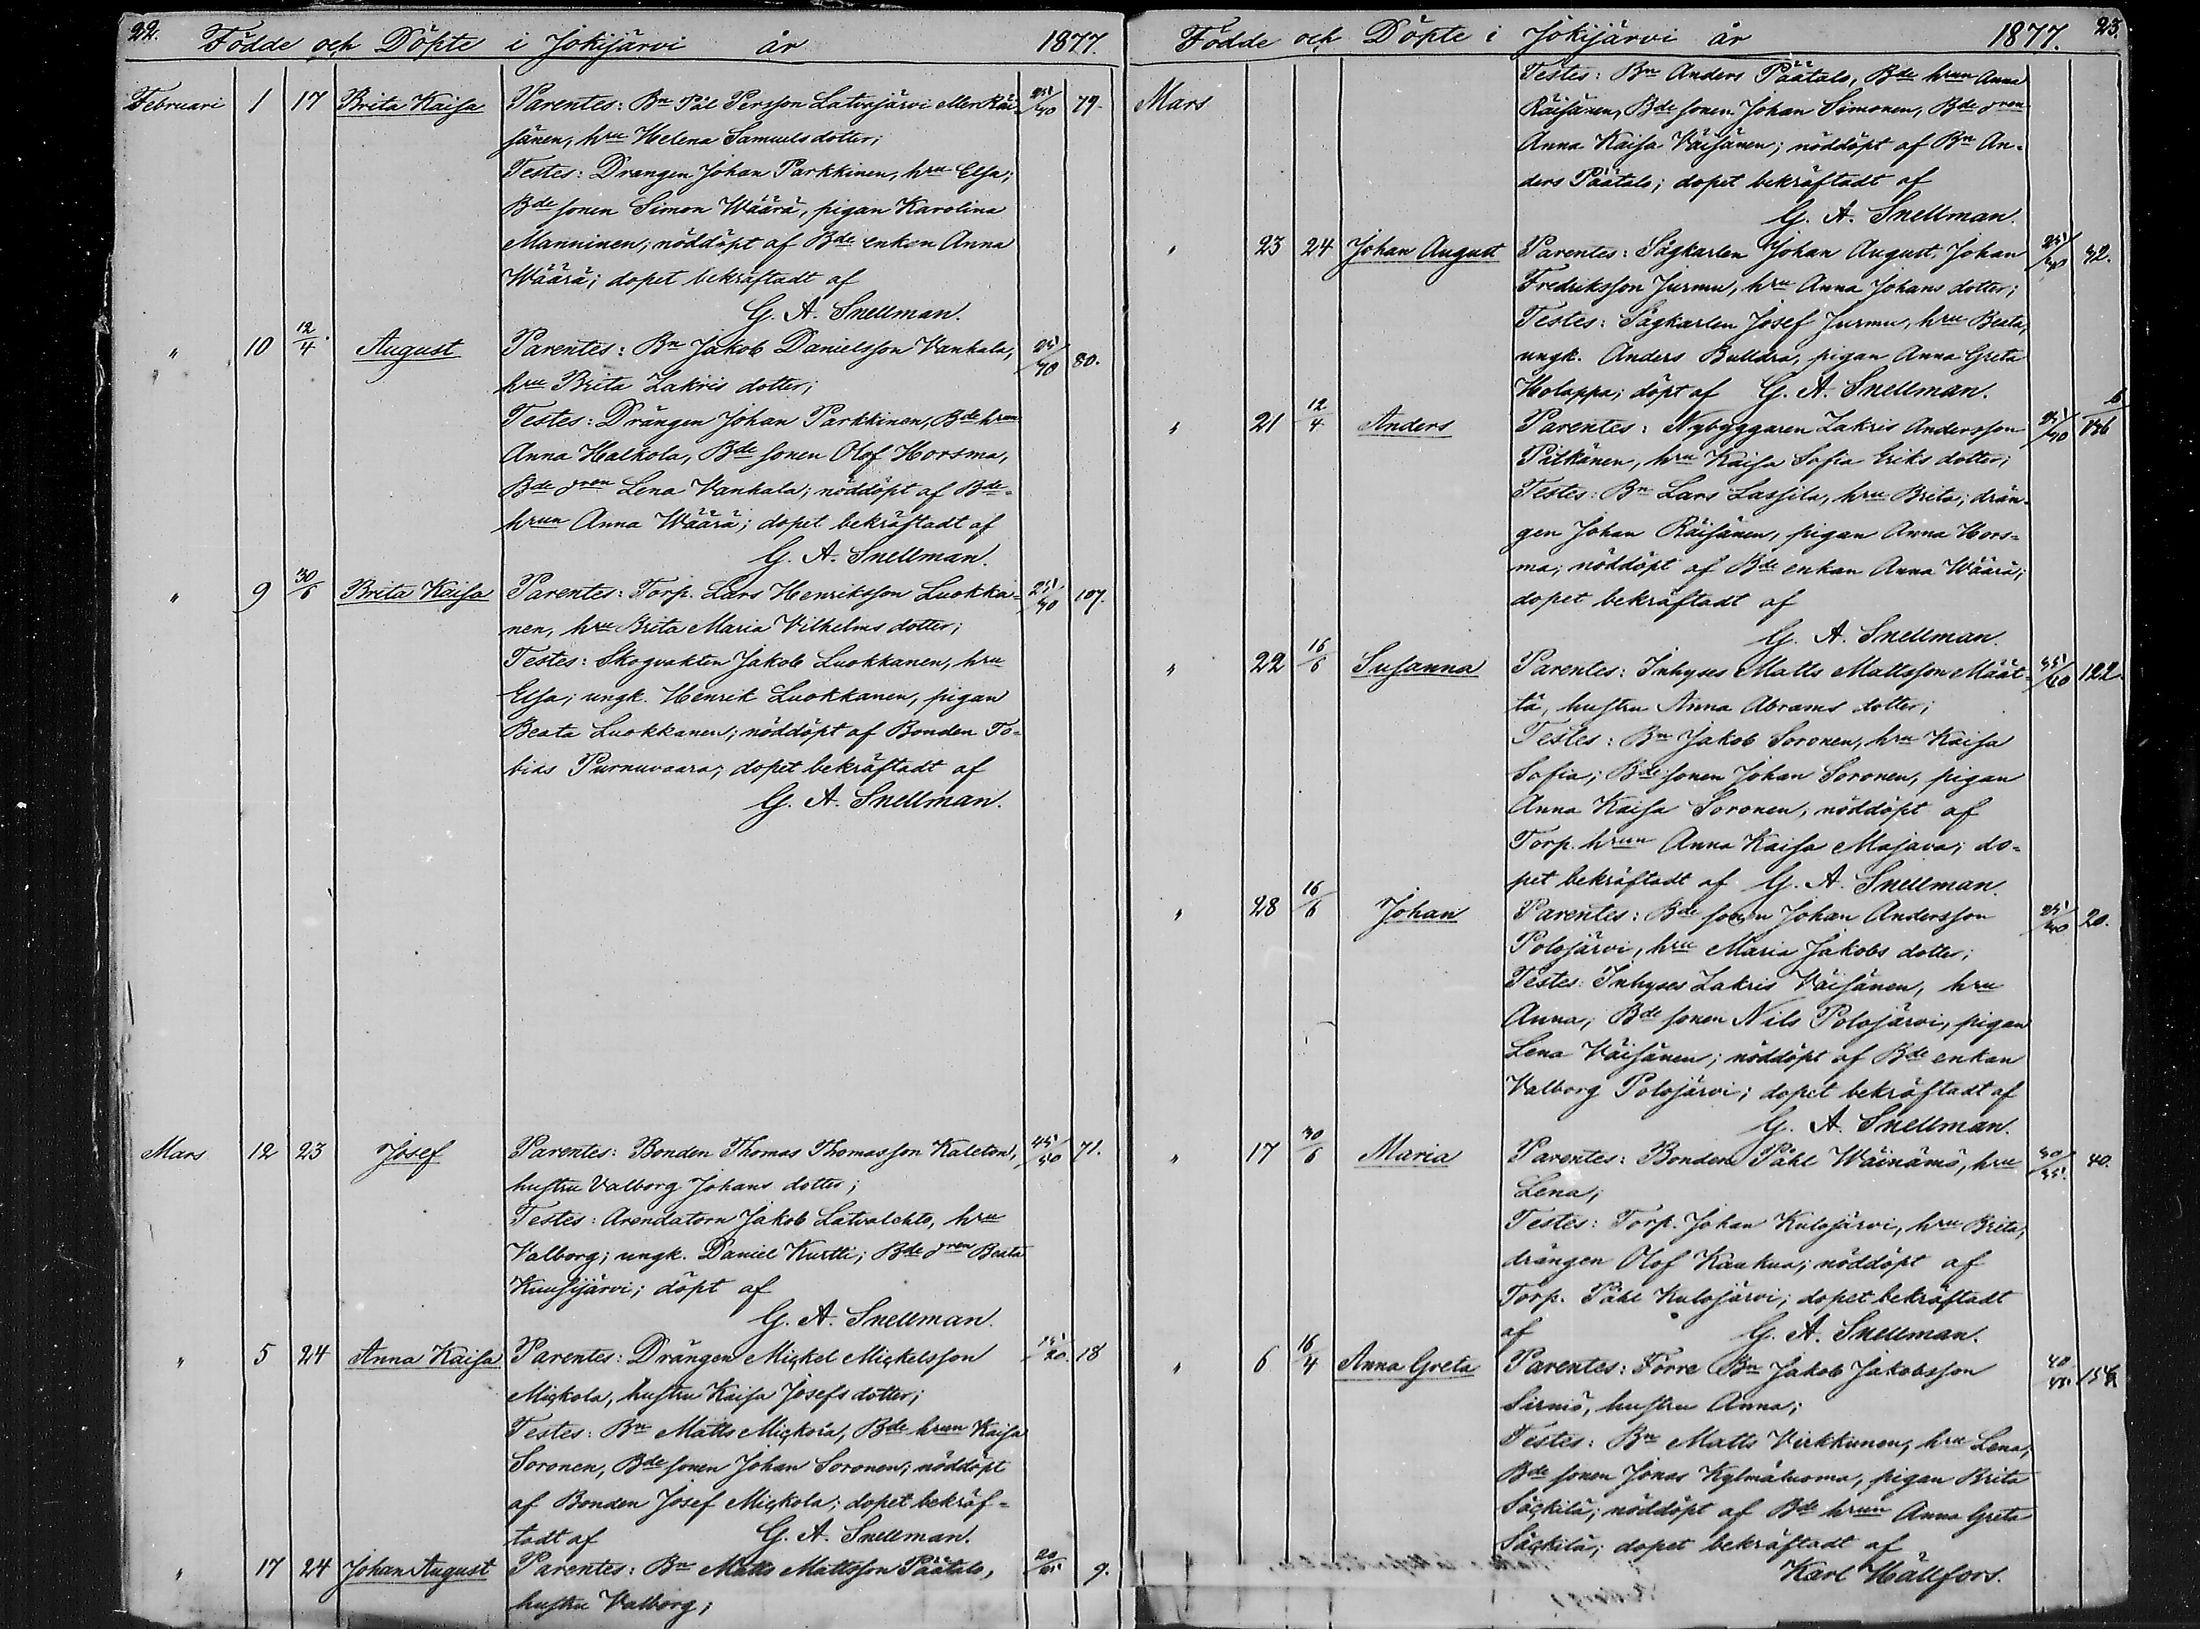 22. Födde och Döpte i Jokijärvi år 1877.
Februari 1 17 Brita Kaisa Parentes: Bn Pål Persson Latvajärvi eller Räi- 25/40 79.
sänen, hru Helena Samuelsdotter;
Testes: Drängen Johan Parkkinen, hru Elsa;
Bde sonen Simon Wäärä, pigan Karolina
Manninen; nöddöpt af Bde enkan Anna
Wäärä; dopet bekräftadt af
G. A. Snellman.
" 10 12/4 August Parentes: Bn Jakob Danielsson Vanhala, 80.
hru Brita Zakris dotter;
Testes: Drängen Johan Parkkinen, Bde hrun
Anna Halkola, Bde sonen Olof Horsma,
Bde dren Lena Vanhala; nöddöpt af Bde-
hrun Anna Wäärä; dopet bekräftadt af
G. A. Snellman.
" 9 30/6 Brita Kaisa Parentes: Torp. Lars Henriksson Luokka- 107.
nen, hru Brita Maria Vilhelms dotter;
Testes: Skogvakten Jakob Luokkanen, hru
Elsa; ungk. Henrik Luokkanen, pigan
Beata Luokkanen; nöddöpt af Bonden To-
bias Purnuvaara; dopet bekräftadt af
G. A. Snellman.
Mars 12 23 Josef Parentes: Bonden Thomas Thomasson Kaleton, 45/50 71.
hustru Valborg Johans dotter;
Testes: Arendatorn Jakob Latvalehto, hru
Valborg; ungk. Daniel Kurtti; Bde dren Beata
Kuusijärvi; döpt af
G. A. Snellman.
" 5 24 Anna Kaisa Parentes: Drängen Mickel Mickelsson 18
Mickola, hustru Kaisa Josefs dotter;
Testes: Bn Matts Mickola, Bde hrun Kaisa
Soronen, Bde sonen Johan Soronen; nöddöpt
af Bonden Josef Mickola; dopet bekräf-
tadt af G. A. Snellman.
" 17 24 Johan August Parentes: Bn Matts Mattsson Päätalo, 9.
hustru Valborg;
Födde och Döpte i Jokijärvi år 1877. 23.
Mars Testes: Bn Anders Päätalo, Bde hrun Anna
Räisänen, Bde sonen Johan Simonen, Bde dren
Anna Kaisa Väisänen; nöddöpt af Bn An-
ders Päätalo; dopet bekräftadt af
G. A. Snellman.
" 23 24 Johan August Parentes: Sågkarlen Johan August Johan 32.
Fredriksson Jurmu, hru Anna Johans dotter;
Testes: Sågkarlen Josef Jurmu, hru Beata,
ungk. Anders Bulldra, pigan Anna Greta
Holappa; döpt af G. A. Snellman.
" 21 12/4 Anders Parentes: Nybyggaren Zakris Andersson
Pitkänen, hru Kaisa Sofia Eriks dotter;
Testes: Bn Lars Lassila, hru Brita; drän-
gen Johan Räisänen, pigan Anna Hors-
ma; nöddöpt af Bde enkan Anna Wäärä;
dopet bekräftadt af
G. A. Snellman.
" 22 16/6 Susanna Parentes: Inhyses Matts Mattsson Määt- 35/40 122.
tä, hustru Anna Abrams dotter;
Testes: Bn Jakob Soronen, hru Kaisa
Sofia; Bde sonen Johan Soronen, pigan
Anna Kaisa Soronen; nöddöpt af
Torp. hrun Anna Kaisa Majava; do-
pet bekräftadt af G. A. Snellman.
" 28 16/6 Johan Parentes: Bde sonen Johan Andersson 20.
Polojärvi, hru Maria Jakobs dotter;
Testes: Inhyses Zakris Väisänen, hru
Anna; Bde sonen Nils Polojärvi, pigan
Lena Väisänen; nöddöpt af Bde enkan
Valborg Polojärvi; dopet bekräftadt af
G. A. Snellman.
" 17 30/6 Maria Parentes: Bonden Påhl Wäinämö, hru 30/35. 40.
Lena;
Testes: Torp. Johan Kulojärvi, hru Brita,
drängen Olof Kaukua; nöddöpt af
Torp. Påhl Kulojärvi; dopet bekräftadt
af G. A. Snellman.
" 6 16/4 Anna Greta Parentes: Förre Bn Jakob Jakobsson 40/45.
Sirniö, hustru Anna;
Testes: Bn Matts Virkkunen, hru Lena,
Bde sonen Jonas Kylmäluoma, pigan Brita
Säckilä; nöddöpt af Bde hrun Anna Greta
Säckilä; dopet bekräftadt af
Karl Hällfors.